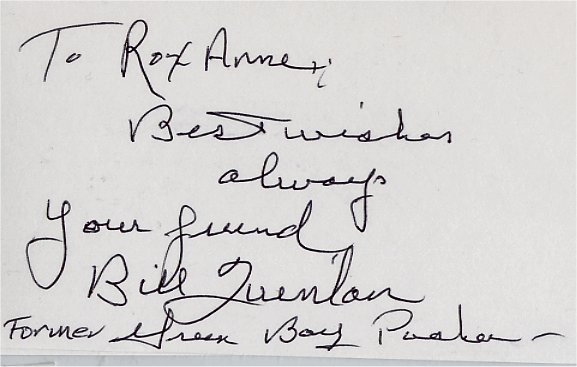 To Rox Anne;
Best wishes
always
Your friend
Bill Quenlan
Former Green Bay Packer -